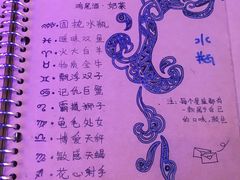 鸡尾酒·奶茶
♒ 固执水瓶
♓ 暧昧双鱼
♈ 火大白羊
♉ 物质金牛
♊ 飘浮双子
♋ 记仇巨蟹
♌ 霸道狮子
♍ 龟毛处女
♎ 博爱天秤
♏ 敏感天蝎
♐ 花心射手
水瓶
注:每个星座都有
一款属于自己
的口味,颜色